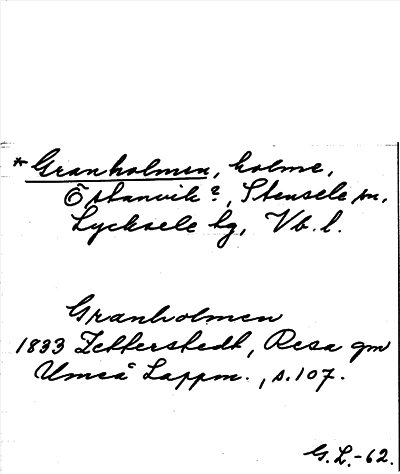 * Granholmen, holme,
Östanvik?, Stensele sn,
Lycksele lg, Vb. l.
Granholmen
1833 Zetterstedt, Resa gm
Umeå Lappm., s. 107.
G.L.-62.